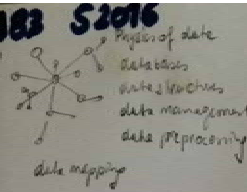 183 S2016
Physics of data
databases
data structures
data management
data preprocessing
data mapping